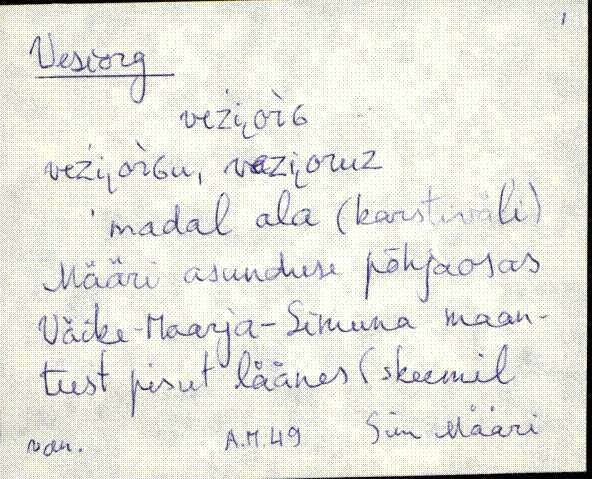 1
Vesiorg
veźi̮oŕ̀G
veźi̮oŕ̀Gu, vezi̮oruz
'madal ala (karstiväli)
Määri asunduse põhjaosas
Väike-Maarja-Simuna maan-
teest pisut läänes (skeemil
van. A.M.49 Sim Määri